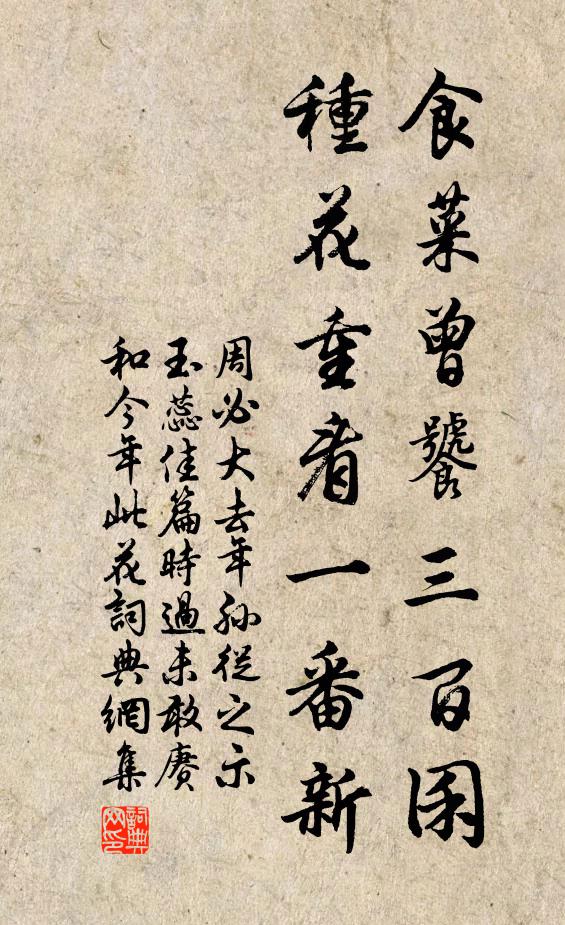 食菜曾饕三百囷
種花重看一番新
周必大去年孫從之示
玉蕊佳篇時過未敢賡
和今年此花詞典網集
詞典
网印